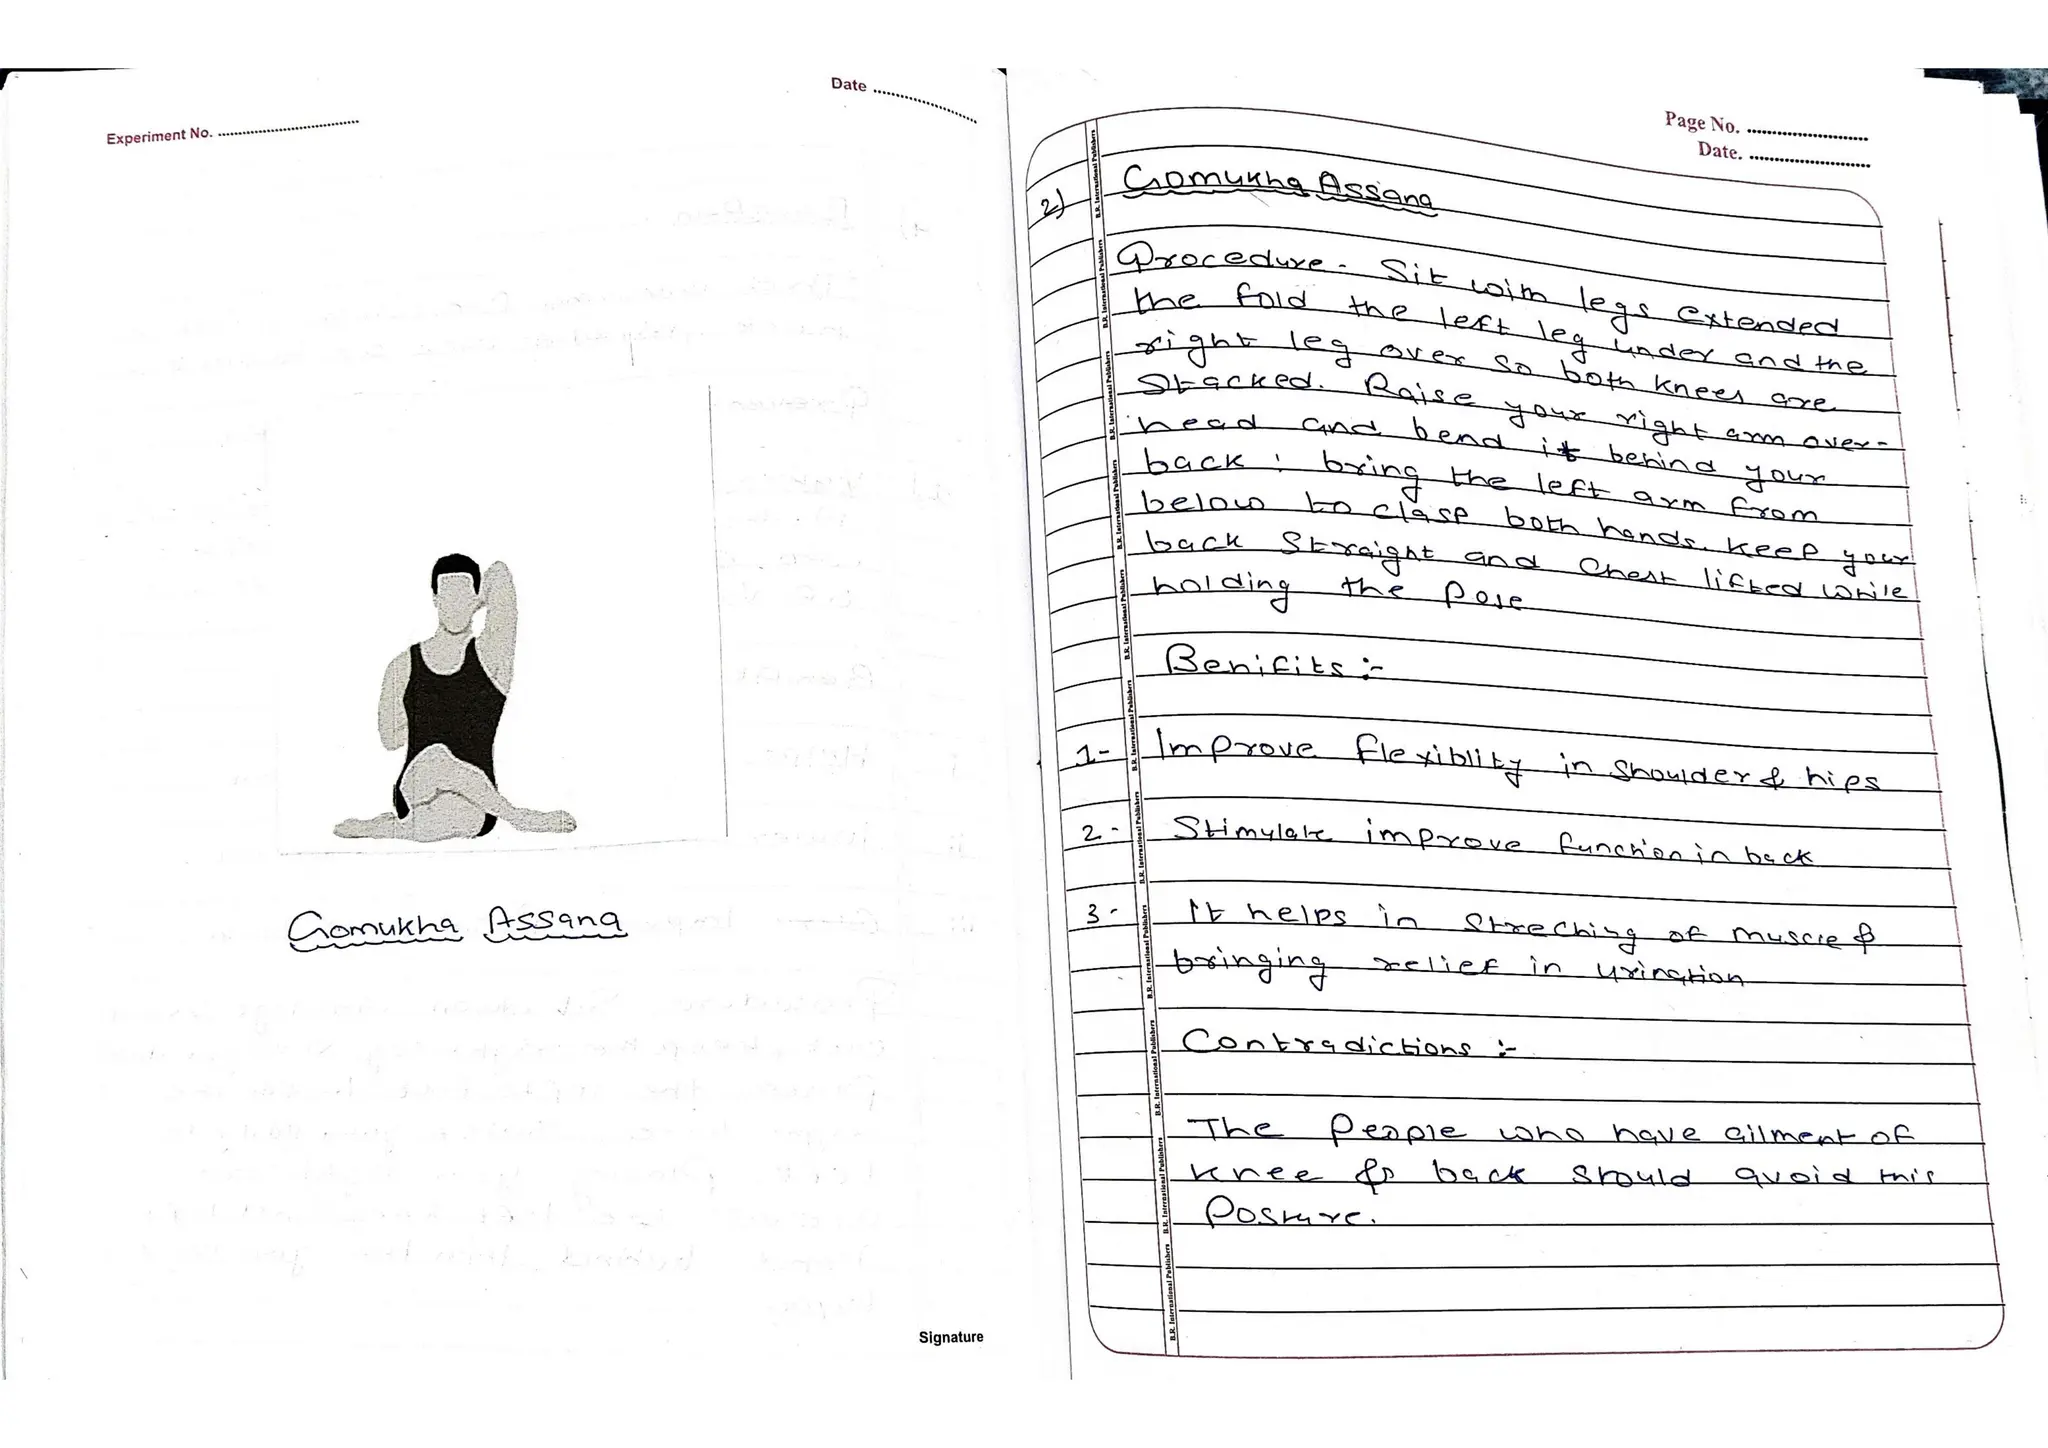 Experiment No.
Date
Gomukha Assana
Signature
Page No.
Date.
2) Gomukha Assana
Procedure - Sit with legs extended
the fold the left leg under and the
right leg over so both knees are
stacked. Raise your right arm over-
head and bend it behind your
back ; bring the left arm from
below to clasp both hands. Keep your
back straight and chest lifted while
holding the pose
Benifits :-
1- Improve flexiblity in shoulder & hips
2- Stimulate improve function in back
3- It helps in streching of muscle &
bringing relief in urination
Contradictions :-
The people who have ailment of
knee & back should avoid this
posture.
B.R. International Publishers